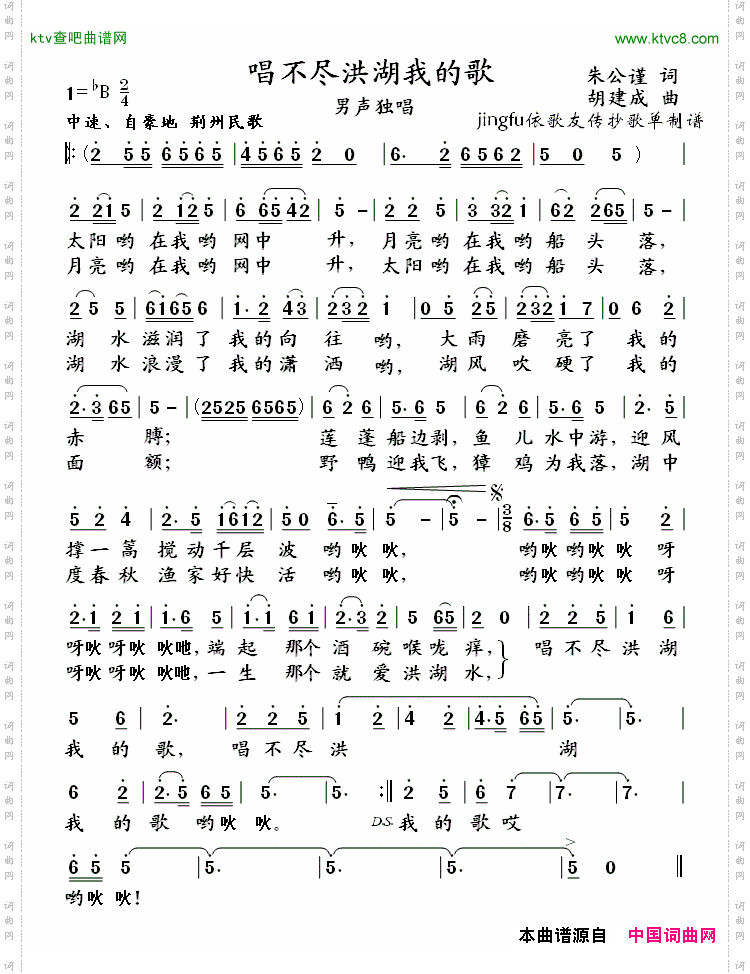 ktv查吧曲谱网
www.ktvc8.com
唱不尽洪湖我的歌
朱公谨 词
1=♭B 2/4
男声独唱
胡建成 曲
中速、自豪地 荆州民歌
jingfu依歌友传抄歌单制谱
(2 55 6565 | 4565 2 0 | 6. 2 6562 | 5 0 5 )
2 21 5 | 2 12 5 | 6 65 42 | 5 - | 2 2 5 | 3 32 1 | 62 265 | 5 -
太阳哟 在我哟 网中 升, 月亮哟 在我哟 船 头 落,
月亮哟 在我哟 网中 升, 太阳哟 在我哟 船 头 落,
2 5 5 | 61656 | 1. 2 43 | 232 1 | 0 5 25 | 2321 7 | 0 6 2
湖 水 滋润了 我的向 往 哟, 大雨 磨 亮了 我的
湖 水 浪漫了 我的潇 洒 哟, 湖风 吹 硬了 我的
2. 3 65 | 5 - | (2525 6565) | 6 2 6 | 5. 6 5 | 6 2 6 | 5. 6 5 | 2. 5
赤 膊; 莲 蓬 船边剥, 鱼 儿 水中游, 迎风
面 额; 野 鸭 迎我飞, 獐 鸡 为我落, 湖中
5 2 4 | 2. 5 1612 | 50 6. 5 | 5 - | 5 - | 3/8 6. 5 6 5 | 5 2
撑一篙 搅动千层 波 哟吙吙, 哟吙哟吙吙 呀
度春秋 渔家好快 活 哟吙吙, 哟吙哟吙吙 呀
2. 1 2 1 | 1. 6 5 | 1. 1 6 1 | 2. 3 2 | 5 65 | 2 0 | 2 2 5 | 1 6
呀吙呀吙 吙吔, 端起 那个酒 碗喉咙痒, 唱不尽洪湖
呀吙呀吙 吙吔, 一生 那个就 爱洪湖水,
5 6 | 2. | 2 2 5 | 1 2 | 4 2 | 4. 5 65 | 5. | 5.
我 的 歌, 唱不尽 洪 湖
6 2 | 2. 5 6 5 | 5. | 5. :‖ 2 5 | 6 7 | 7. | 7.
我 的 歌 哟吙 吙。 D.S. 我 的 歌 哎
6 5 5 | 5. | 5. | 5. | 5. | 5 0
哟吙 吙!
本曲谱源自 中国词曲网